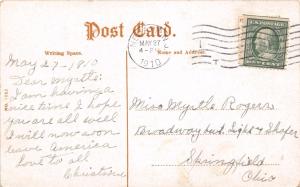 Post Card.
Writing Space.
Name and Address
MAY 27
4-P
1910
May 27-1910
Dear Myrtle:
I am having a
nice time I hope
you are all well
I will now soon
leave America
Love to all
Miss Myrtle Rogers
Broadway bet. Light & Shafer
Springfield
Ohio